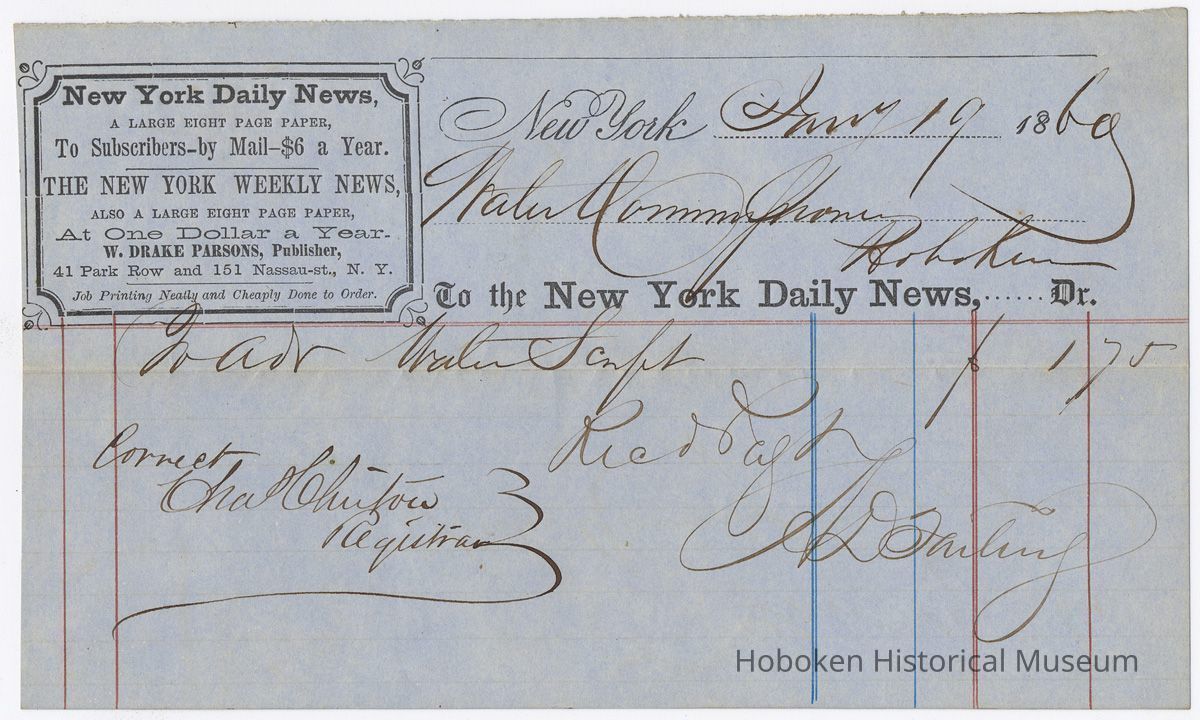 New York Daily News,
A LARGE EIGHT PAGE PAPER,
To Subscribers-by Mail-$6 a Year.
THE NEW YORK WEEKLY NEWS,
ALSO A LARGE EIGHT PAGE PAPER,
At One Dollar a Year.
W. DRAKE PARSONS, Publisher,
41 Park Row and 151 Nassau-st., N. Y.
Job Printing Neatly and Cheaply Done to Order.
New York Jany 19 1860
Water Commissioners
Hoboken
To the New York Daily News, ...... Dr.
To adv Water Script $ 1 75
Correct
Chas Clinton
Registrar
Recd Payt
Hoboken Historical Museum